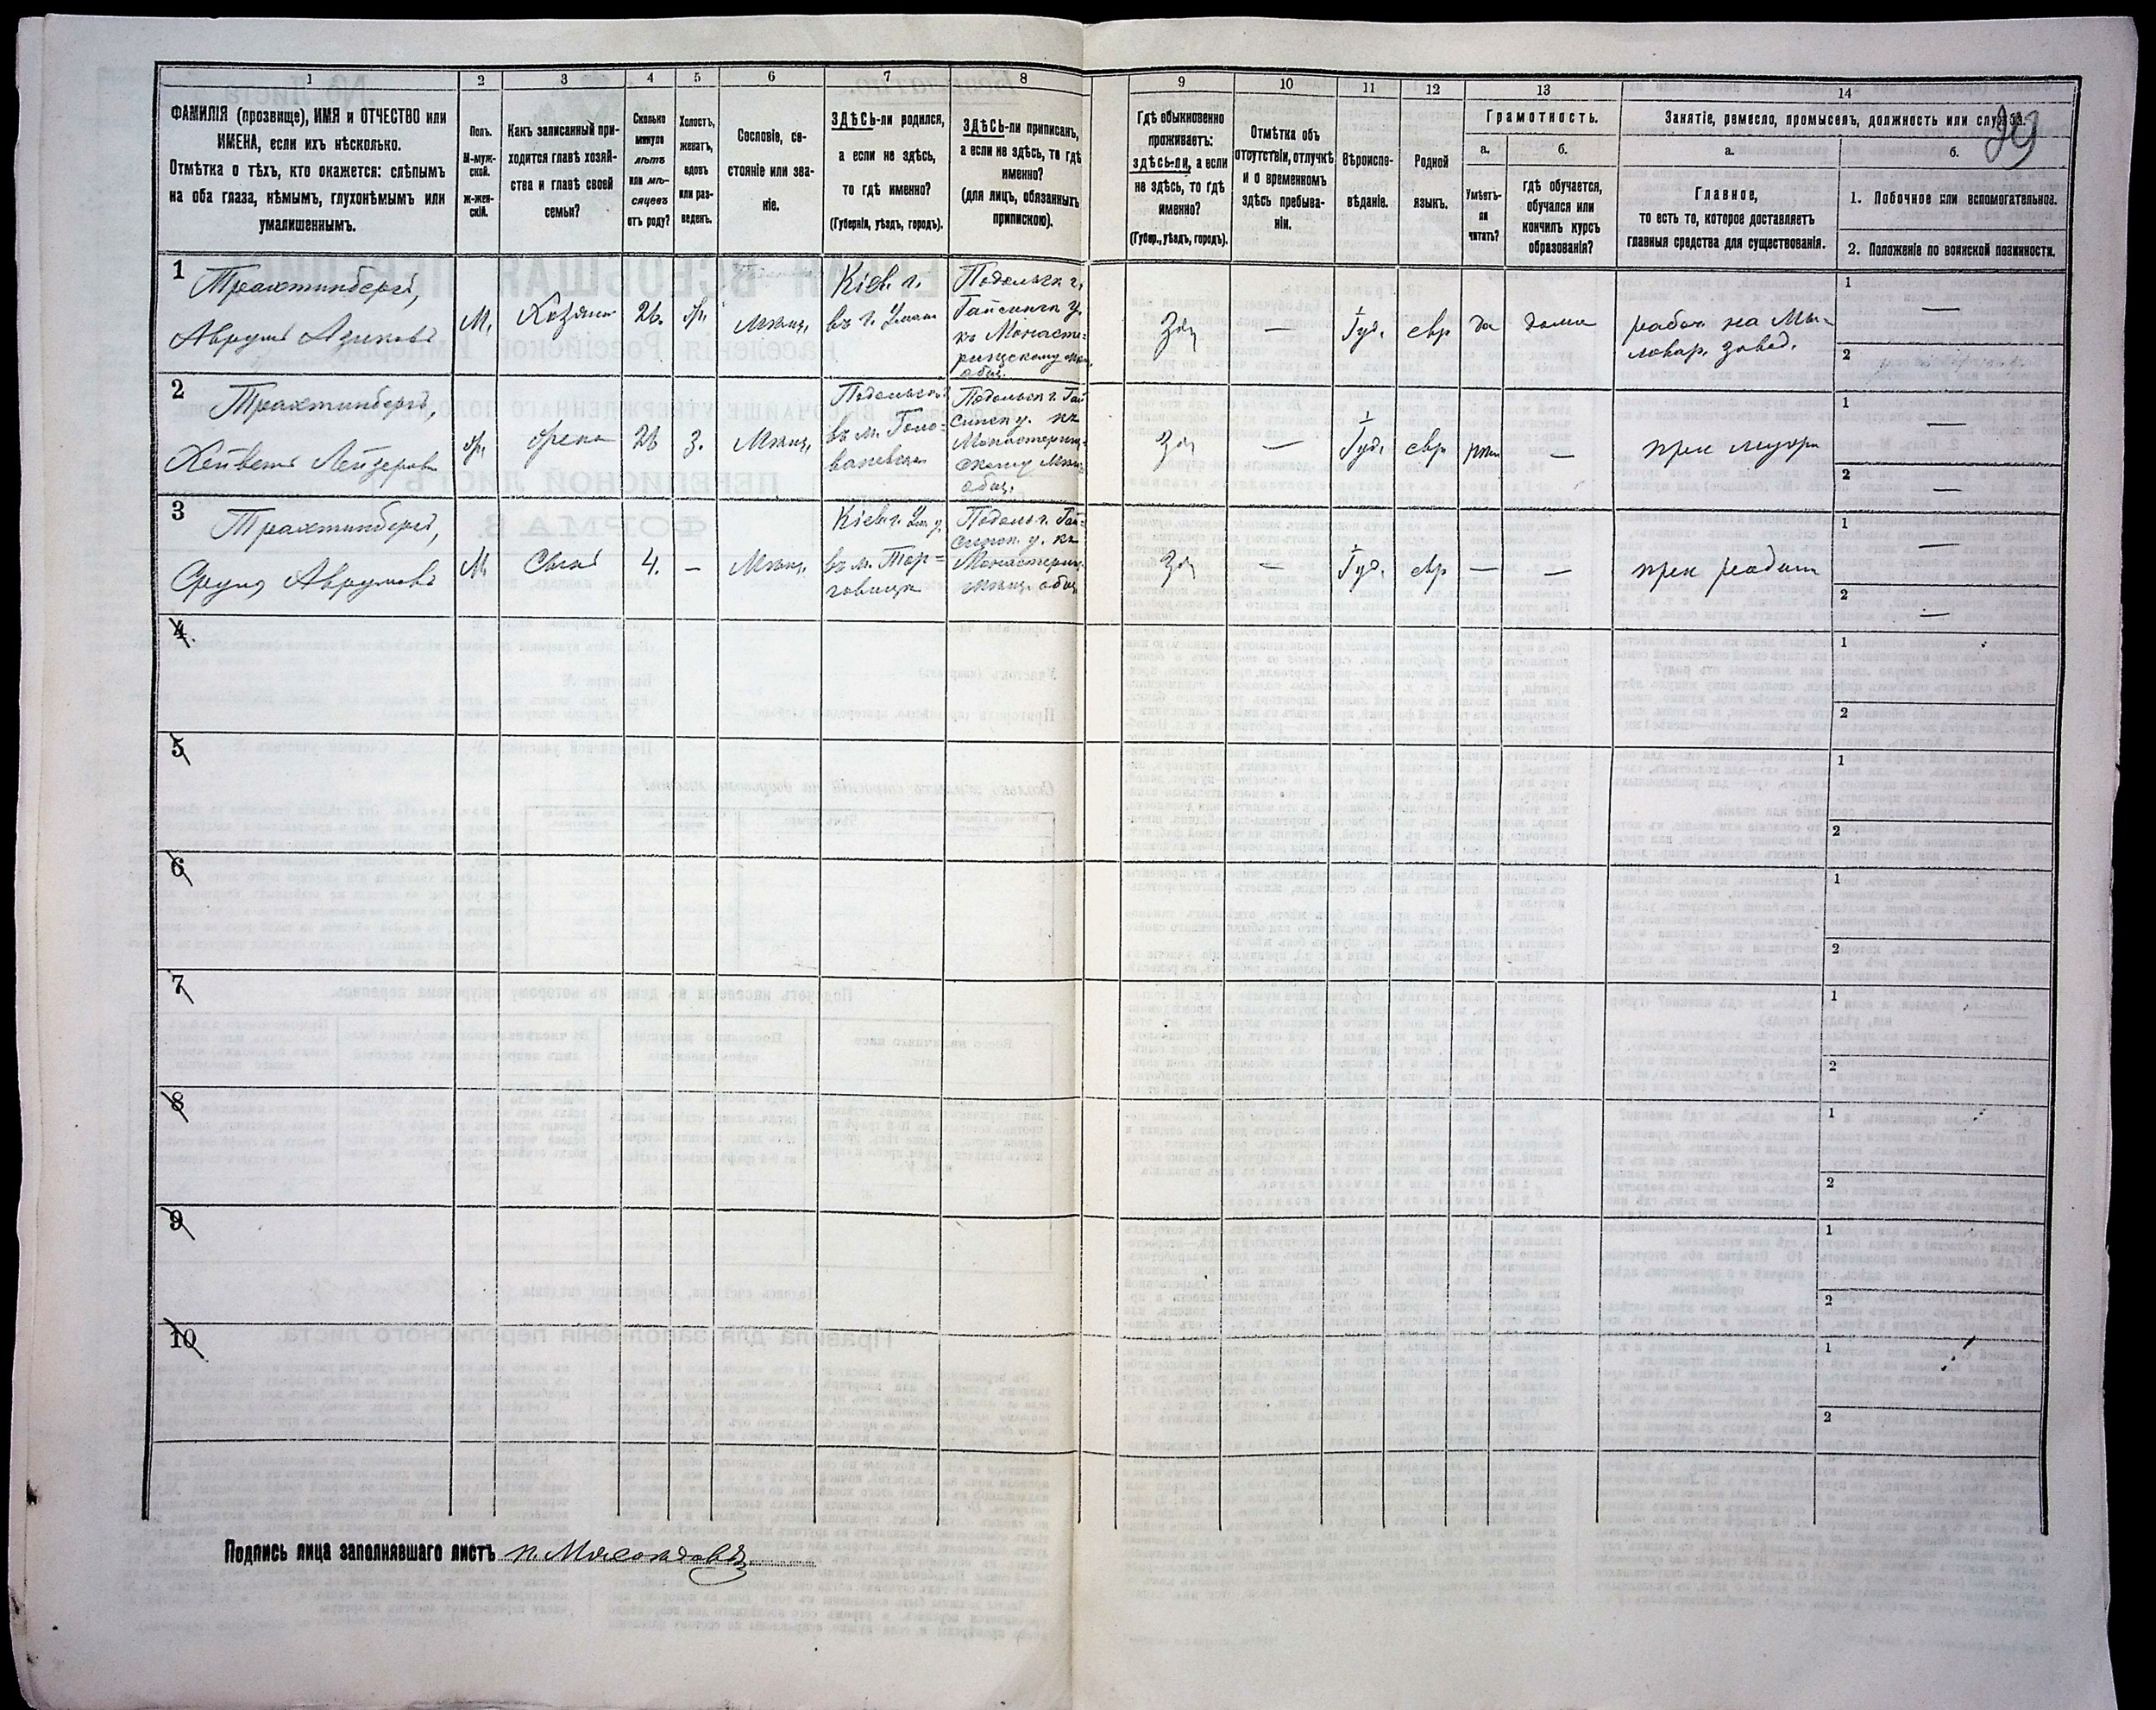 1
2
3
4
5
6
7
8
9
10
11
12
13
14
39
ФАМИЛІЯ (прозвище), ИМЯ и ОТЧЕСТВО или
ИМЕНА, если ихъ нѣсколько.
Отмѣтка о тѣхъ, кто окажется: слѣпымъ
на оба глаза, нѣмымъ, глухонѣмымъ или
умалишеннымъ.
Полъ.
М-муж-
ской.
Ж-жен-
скій.
Какъ записанный при-
ходится главѣ хозяй-
ства и главѣ своей
семьи?
Сколько
минуло
лѣтъ
или мѣ-
сяцевъ
отъ роду?
Холостъ,
женатъ,
вдовъ
или раз-
веденъ.
Сословіе, со-
стояніе или зва-
ніе.
ЗДѢСЬ-ли родился,
а если не здѣсь,
то гдѣ именно?
(Губернія, уѣздъ, городъ).
ЗДѢСЬ-ли приписанъ,
а если не здѣсь, то гдѣ
именно?
(для лицъ, обязанныхъ
припискою).
Гдѣ обыкновенно
проживаетъ:
здѣсь-ли, а если
не здѣсь, то гдѣ
именно?
(Губер., уѣздъ, городъ).
Отмѣтка объ
отсутствіи, отлучкѣ
и о временномъ
здѣсь пребыва-
ніи.
Вѣроиспо-
вѣданіе.
Родной
языкъ.
Грамотность.
а.
Умѣетъ-
ли
читать?
б.
гдѣ обучается,
обучался или
кончилъ курсъ
образованія?
Занятіе, ремесло, промыселъ, должность или служба.
а.
Главное,
то есть то, которое доставляетъ
главныя средства для существованія.
б.
1. Побочное или вспомогательное.
2. Положеніе по воинской повинности.
1
Трахтинбергъ,
Аврумъ Азиковъ
М.
Хозяинъ
26.
ж
Мѣщ.
Кіев. г.
въ г. Умани
Подольск г.
Гайсинск у.
къ Монасте-
рищскому мѣщ.
общ.
Зд
—
Іуд.
евр
да
дома
рабоч на Мы-
ловар. завод.
1 —
2
2
Трахтинбергъ,
Лейзеров
ж
жена
26
з.
Мѣщ.
Подольск г.
въ м. Голо-
ваневск
Подольск г. Гай
синск у. къ
Монастерищ-
скому мѣщ.
общ.
Зд
—
Іуд.
евр
нѣт
—
при мужѣ
1 —
2 —
3
Трахтинбергъ,
Срулъ Аврумовъ
М
Сынъ
4.
–
Мѣщ.
Кіев г. Ум у.
въ м. Тор=
говицѣ
Подольг. Гай-
синск. у. къ
Монастерищ.
мѣщ. общ
Зд
—
Іуд.
евр
—
—
при родит
1 —
2 —
4.
1
2
5
1
2
6
1
2
7
1
2
8
1
2
9
1
2
10
1
2
Подпись лица заполнявшаго листъ П. Мясоѣдовъ